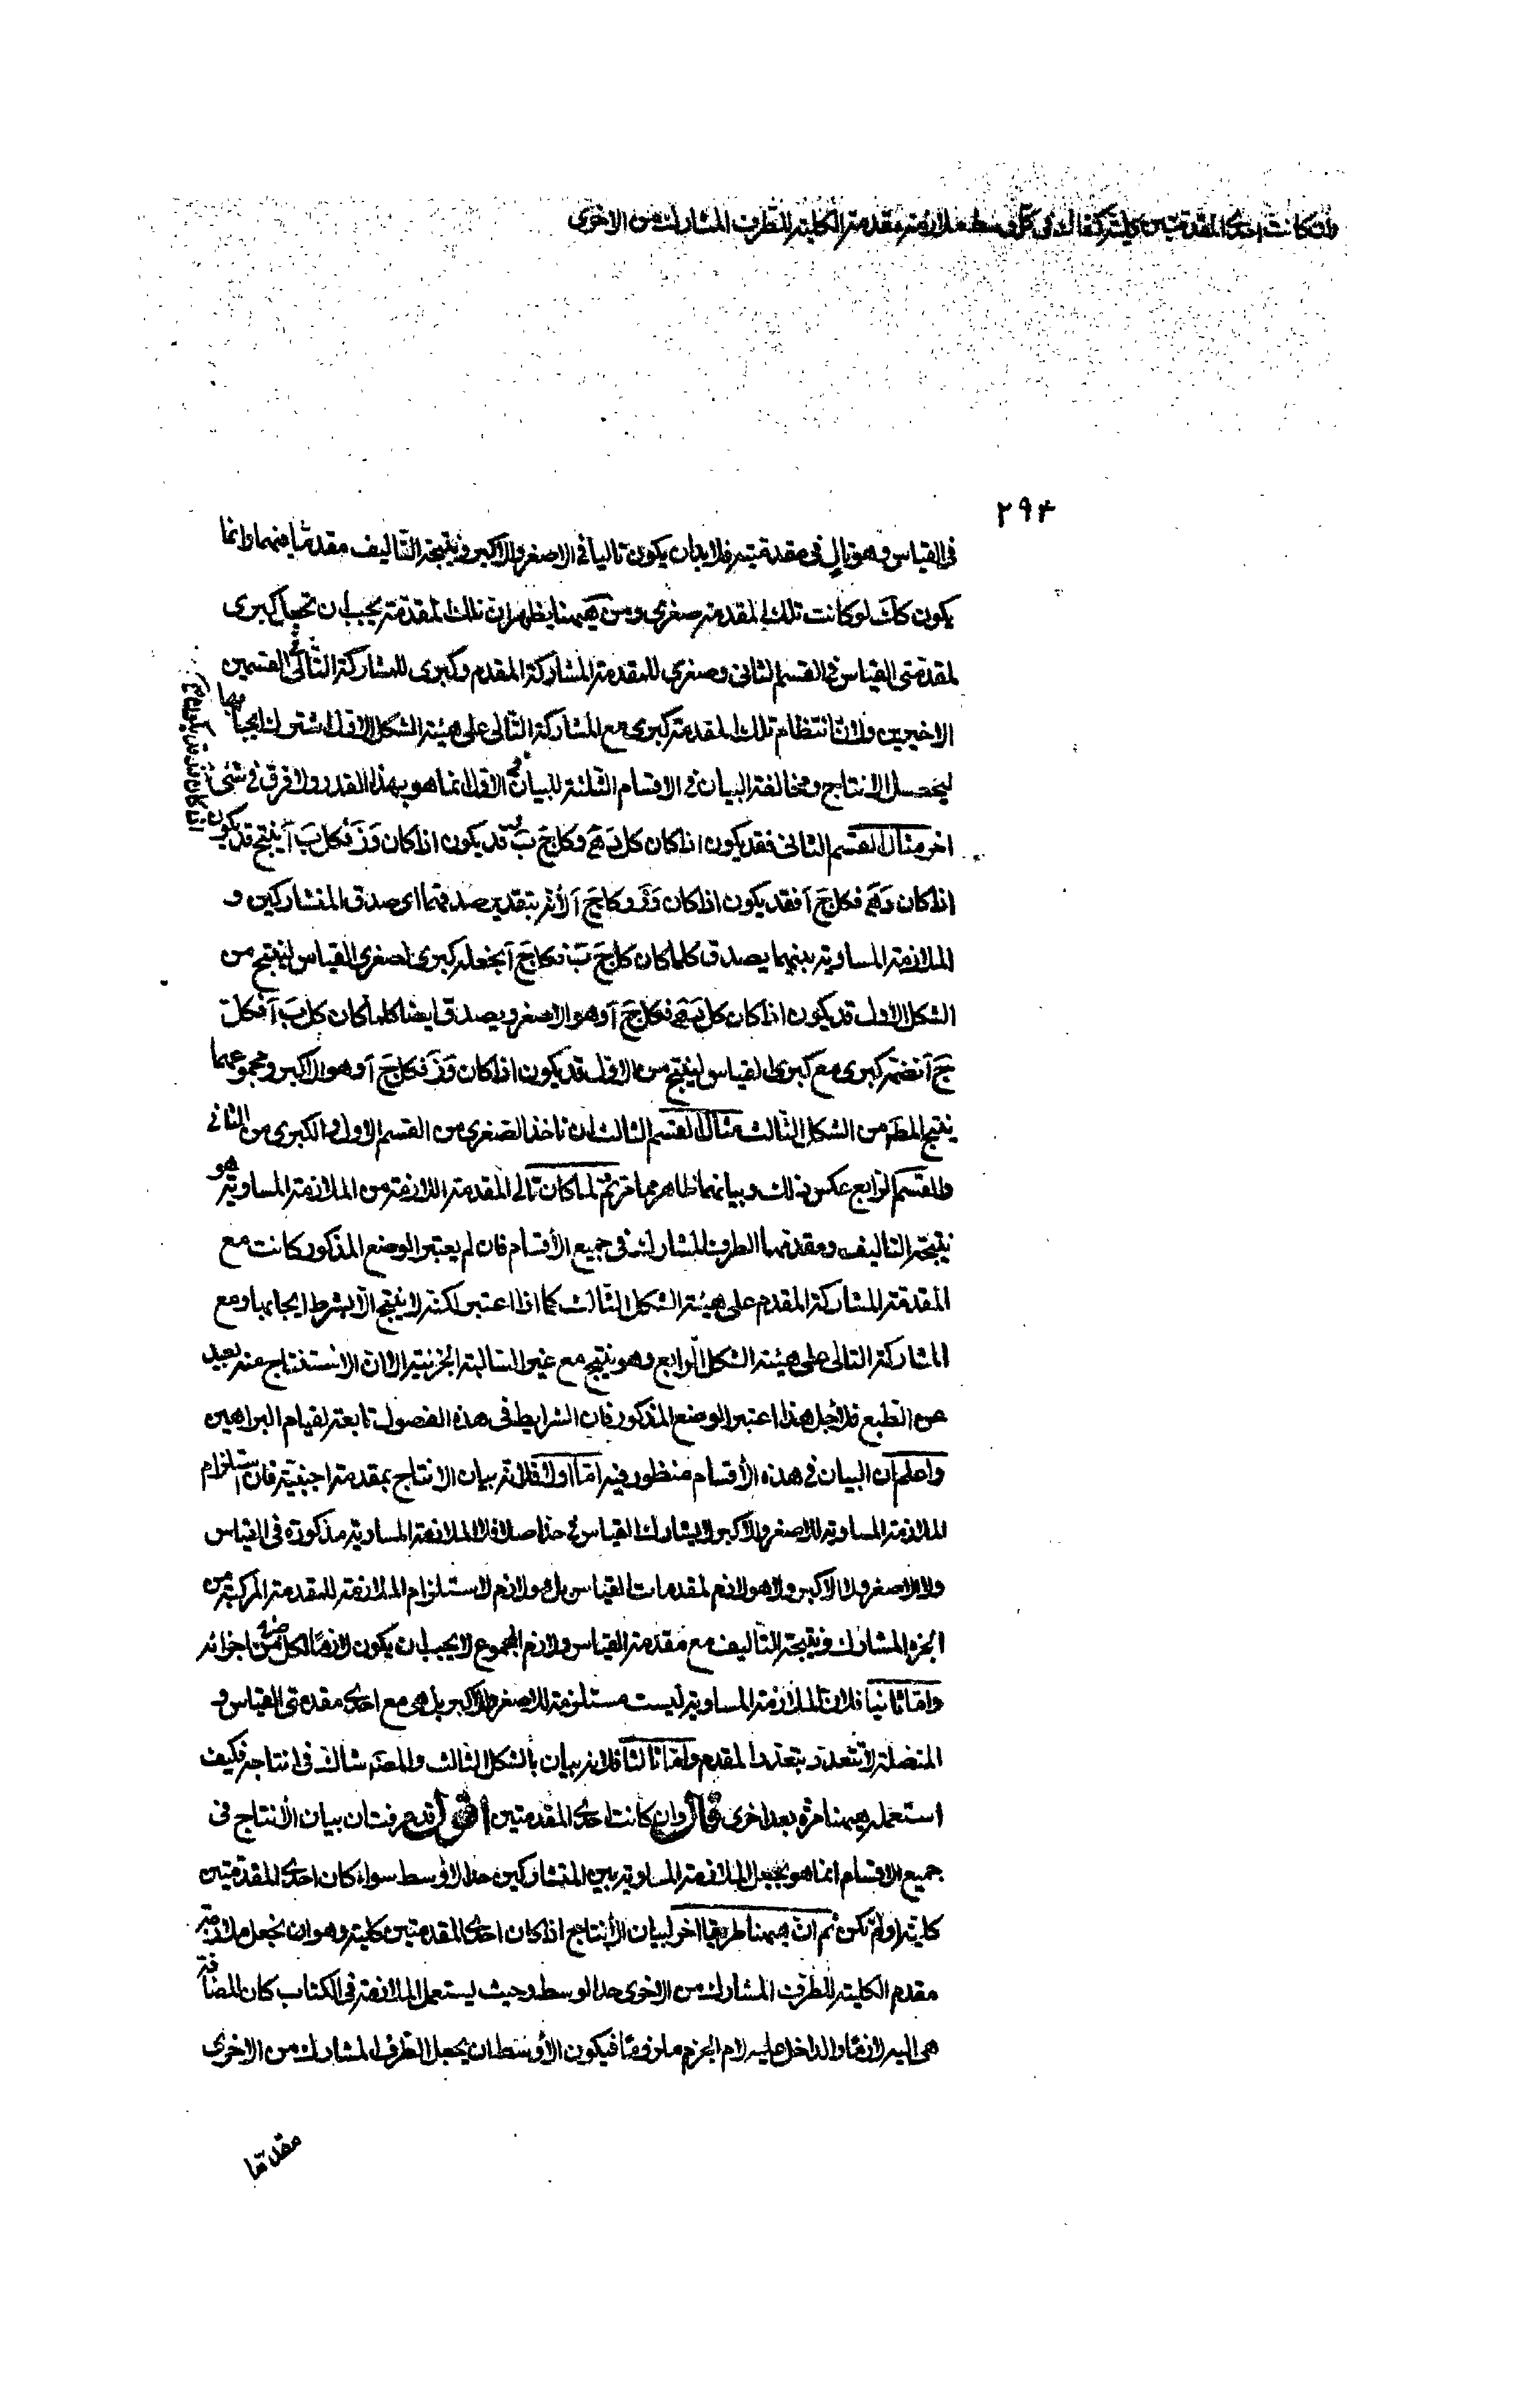 وان كانت احدى المقدمتين كلية كفا لزومية مقدمة الكلية للطرف المشارك من الاخرى
٢٩٤
فى القياس وهو تالٍ فى مقدمتيه فلا بد ان يكون تاليا فى الاصغر والاكبر ونتيجة التأليف مقدما فيهما وانما
يكون كك لو كانت تلك المقدمة صغرى ومن هيهنا يظهر ان تلك المقدمة يجب ان تجعل كبرى
لمقدمتى القياس فى القسم الثانى وصغرى للمقدمة المشاركة المقدم وكبرى للمشاركة التالى فى القسمين
الاخيرين ولان انتظام تلك المقدمة كبرى مع المشاركة التالى على هيئة الشكل الاول اشترط ايجابها
ليحصل الانتاج ومخالفة البيان فى الاقسام الثلثة للبيان فى الاول انما هو بهذا القدر ولا فرق فى شئ
اخر مثال القسم الثانى فقد يكون اذا كان كل دَ هَ وكل جَ بَ قد يكون اذا كان وَ زَ فكل بَ آ ينتج قد يكون
اذا كان دَ هَ فكل جَ آ فقد يكون اذا كان وَ زَ وكل جَ آ لأنه بتقدير صدقهما اى صدق المتشاركين و
الملازمة المساوية بينهما يصدق كلما كان كل جَ بَ فكل جَ آ نجعله كبرى لصغرى القياس لينتج من
الشكل الاول قد يكون اذا كان كل دَ هَ فكل جَ آ وهو الاصغر ويصدق ايضا كلما كان كل بَ آ فكل
جَ آ نضمه كبرى مع كبرى القياس لينتج من الاول قد يكون اذا كان وَ زَ فكل جَ آ وهو الاكبر ومجموعهما
ينتج المطم من الشكل الثالث مثال القسم الثالث ان ناخذ الصغرى من القسم الاول والكبرى من الثانى
والقسم الرابع عكس ذلك وبيانهما ظاهر مما مر ثم لما كان تالى المقدمة اللازمة من الملازمة المساوية هو
نتيجة التاليف ومقدمها الطرف المشارك فى جميع الأقسام فان لم يعتبر الوضع المذكور كانت مع
المقدمة المشاركة المقدم على هيئة الشكل الثالث كما اذا اعتبر لكنه لا ينتج الا بشرط ايجابها ومع
المشاركة التالى على هيئة الشكل الرابع وهو ينتج مع غير السالبة الجزئية الا ان الاستنتاج منه بعيد
عن الطبع فلاجل هذا اعتبر الوضع المذكور فان الشرايط فى هذه الفصول تابعة لقيام البراهين
واعلم ان البيان فى هذه الأقسام منظور فيه اما اولا فلانه بيان الانتاج بمقدمة اجنبية فان استلزام
الملازمة المساوية للاصغر والاكبر لا يشارك القياس فى حد اصلا فلا الملازمة المساوية مذكورة فى القياس
ولا الاصغر ولا الاكبر ولا هو لازم لمقدمات القياس بل هو لازم لاستلزام الملازمة للمقدمة المركبة من
الجزء المشارك ونتيجة التأليف مع مقدمة القياس ولازم المجموع لا يجب ان يكون لازما لكل من اجزائه
واما ثانيا فلان الملازمة المساوية ليست مستلزمة للاصغر والاكبر بل هى مع احدى مقدمتى القياس و
المتصلة لا تتعدد بتعدد المقدم واما ثالثا فلانه بيان بالشكل الثالث والمصم شاك فى انتاجه فكيف
استعمله هيهنا مرة بعد اخرى قال وان كانت احدى المقدمتين اقول قد عرفت ان بيان الأنتاج فى
جميع الاقسام انما هو بجعل الملازمة المساوية بين المتشاركين حدا اوسط سواء كان احدى المقدمتين
كلية او لم تكن ثم ان هيهنا طريقا اخر لبيان الأنتاج اذا كان احدى المقدمتين كلية وهو ان نجعل ملازمة
مقدم الكلية للطرف المشارك من الاخرى حدا اوسط وحيث يستعمل الملازمة فى الكتاب كان المضافة
هى اليه لازما والداخل عليه لام الجزم ملزوما فيكون الأوسط ان يجعل الطرف المشارك من الاخرى
مقدما